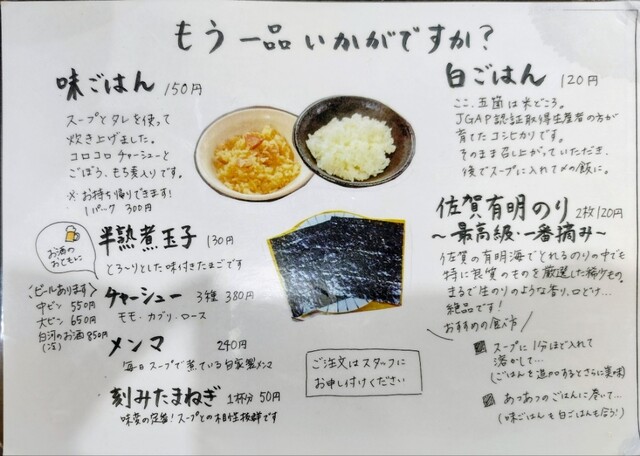 もう一品いかがですか？
味ごはん 150円
スープとタレを使って
炊き上げました。
コロコロチャーシューと
ごぼう、もち麦入りです。
※お持ち帰りできます！
1パック 300円
白ごはん 120円
ここ、五箇は米どころ。
JGAP認証取得生産者の方が
育てたコシヒカリです。
そのまま召し上がっていただき、
後でスープに入れて〆の飯に。
お酒の
おともに
半熟煮玉子 130円
とろ〜りとした味付きたまごです
〈ビールあります〉
中ビン 550円
大ビン 650円
白河のお酒 850円
(冷)
チャーシュー 3種 380円
モモ・カブリ・ロース
メンマ 240円
毎日スープで煮ている自家製メンマ
刻みたまねぎ 1杯分 50円
味変の定番！スープとの相性抜群です
佐賀有明のり 2枚120円
〜最高級・一番摘み〜
佐賀の有明海でとれるのりの中でも
特に良質のものを厳選した稀少もの。
まるで生のりのような香り、口どけ…
絶品です！
おすすめの食べ方
スープに1分ほど入れて
溶かして…
(ごはんを追加するとさらに美味)
あつあつのごはんに巻いて…
(味ごはんも白ごはんも合う！)
ご注文はスタッフに
お申し付けください